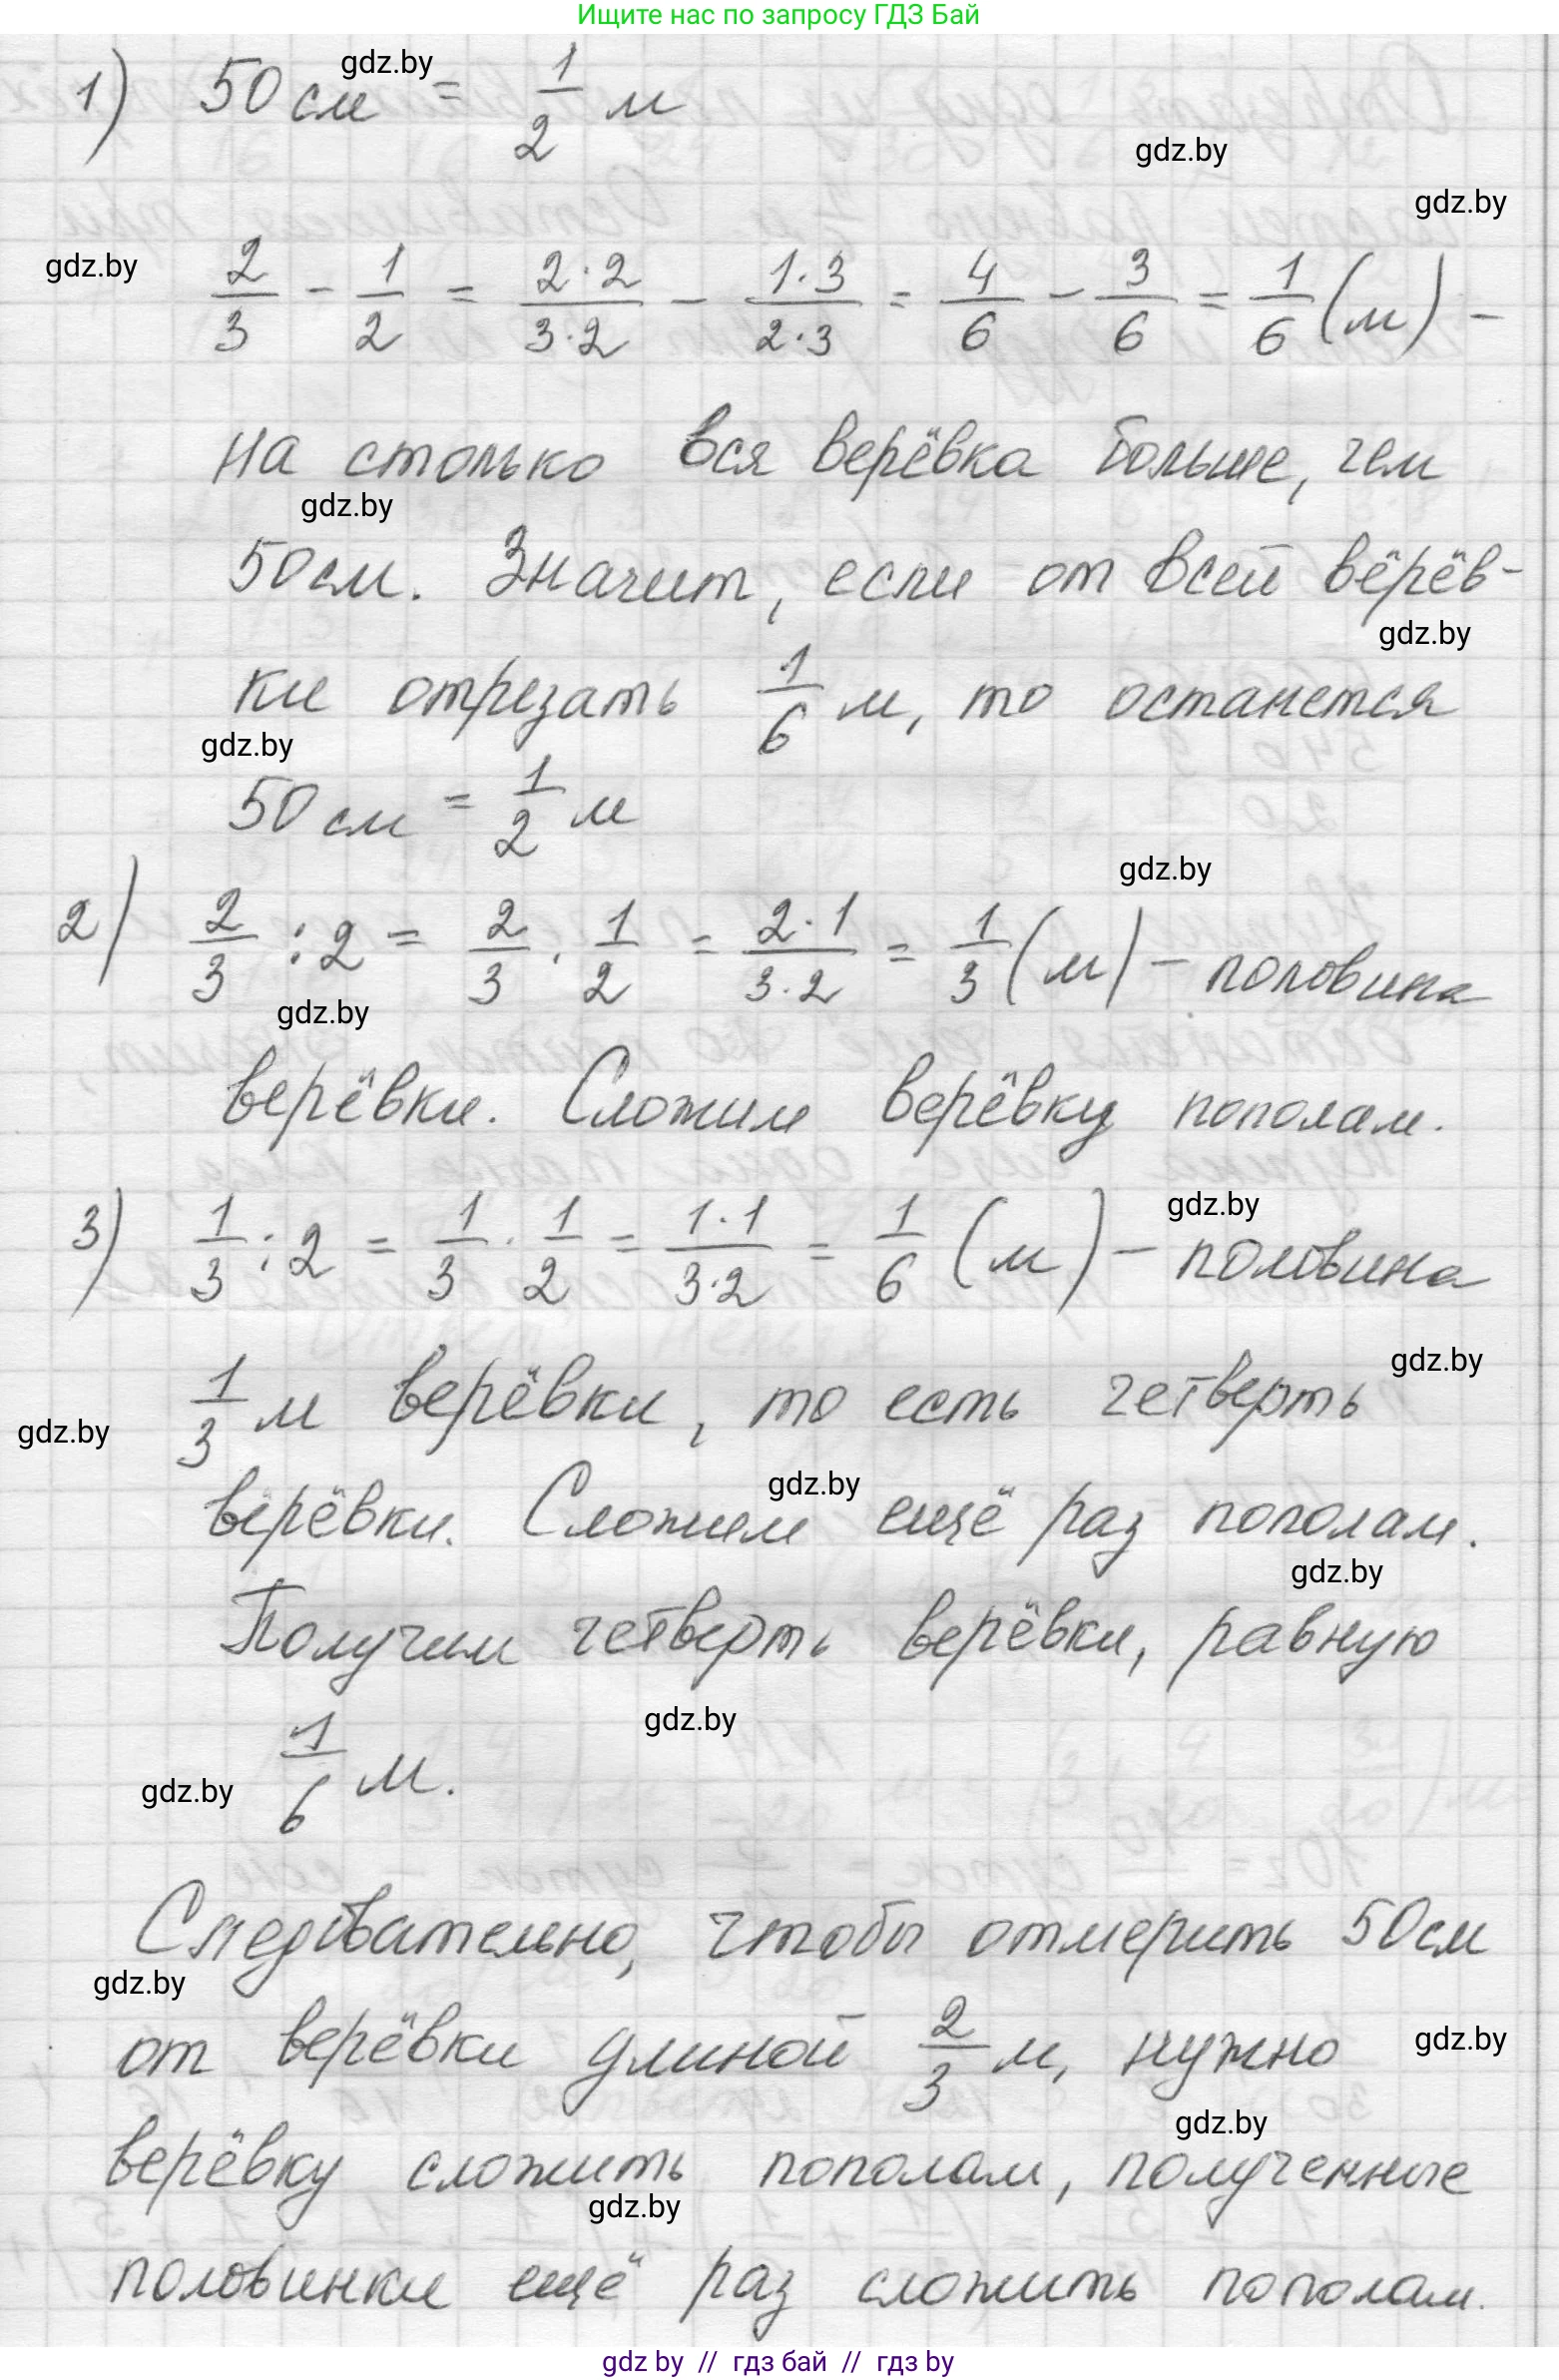 Ищите нас по запросу ГДЗ Бай
1) 50 см = 1/2 м
gdz.by
gdz.by
gdz.by
gdz.by
2/3 - 1/2 = 2·2/3·2 - 1·3/2·3 = 4/6 - 3/6 = 1/6 (м) -
на столько вся верёвка больше, чем
gdz.by
50 см. Значит, если от всей верёв-
gdz.by
ки отрезать 1/6 м, то останется
gdz.by
50 см = 1/2 м
gdz.by
2) 2/3 : 2 = 2/3 · 1/2 = 2·1/3·2 = 1/3 (м) - половина
gdz.by
верёвки. Сложим верёвку пополам.
gdz.by
3) 1/3 : 2 = 1/3 · 1/2 = 1·1/3·2 = 1/6 (м) - половина
gdz.by
1/3 м верёвки, то есть четверть
gdz.by
gdz.by
верёвки. Сложим ещё раз пополам.
gdz.by
Получим четверть верёвки, равную
gdz.by
1/6 м.
gdz.by
Следовательно, чтобы отмерить 50 см
gdz.by
от верёвки длиной 2/3 м, нужно
gdz.by
gdz.by
верёвку сложить пополам, полученные
gdz.by
половинки ещё раз сложить пополам.
gdz by // гдз бай // gdz by